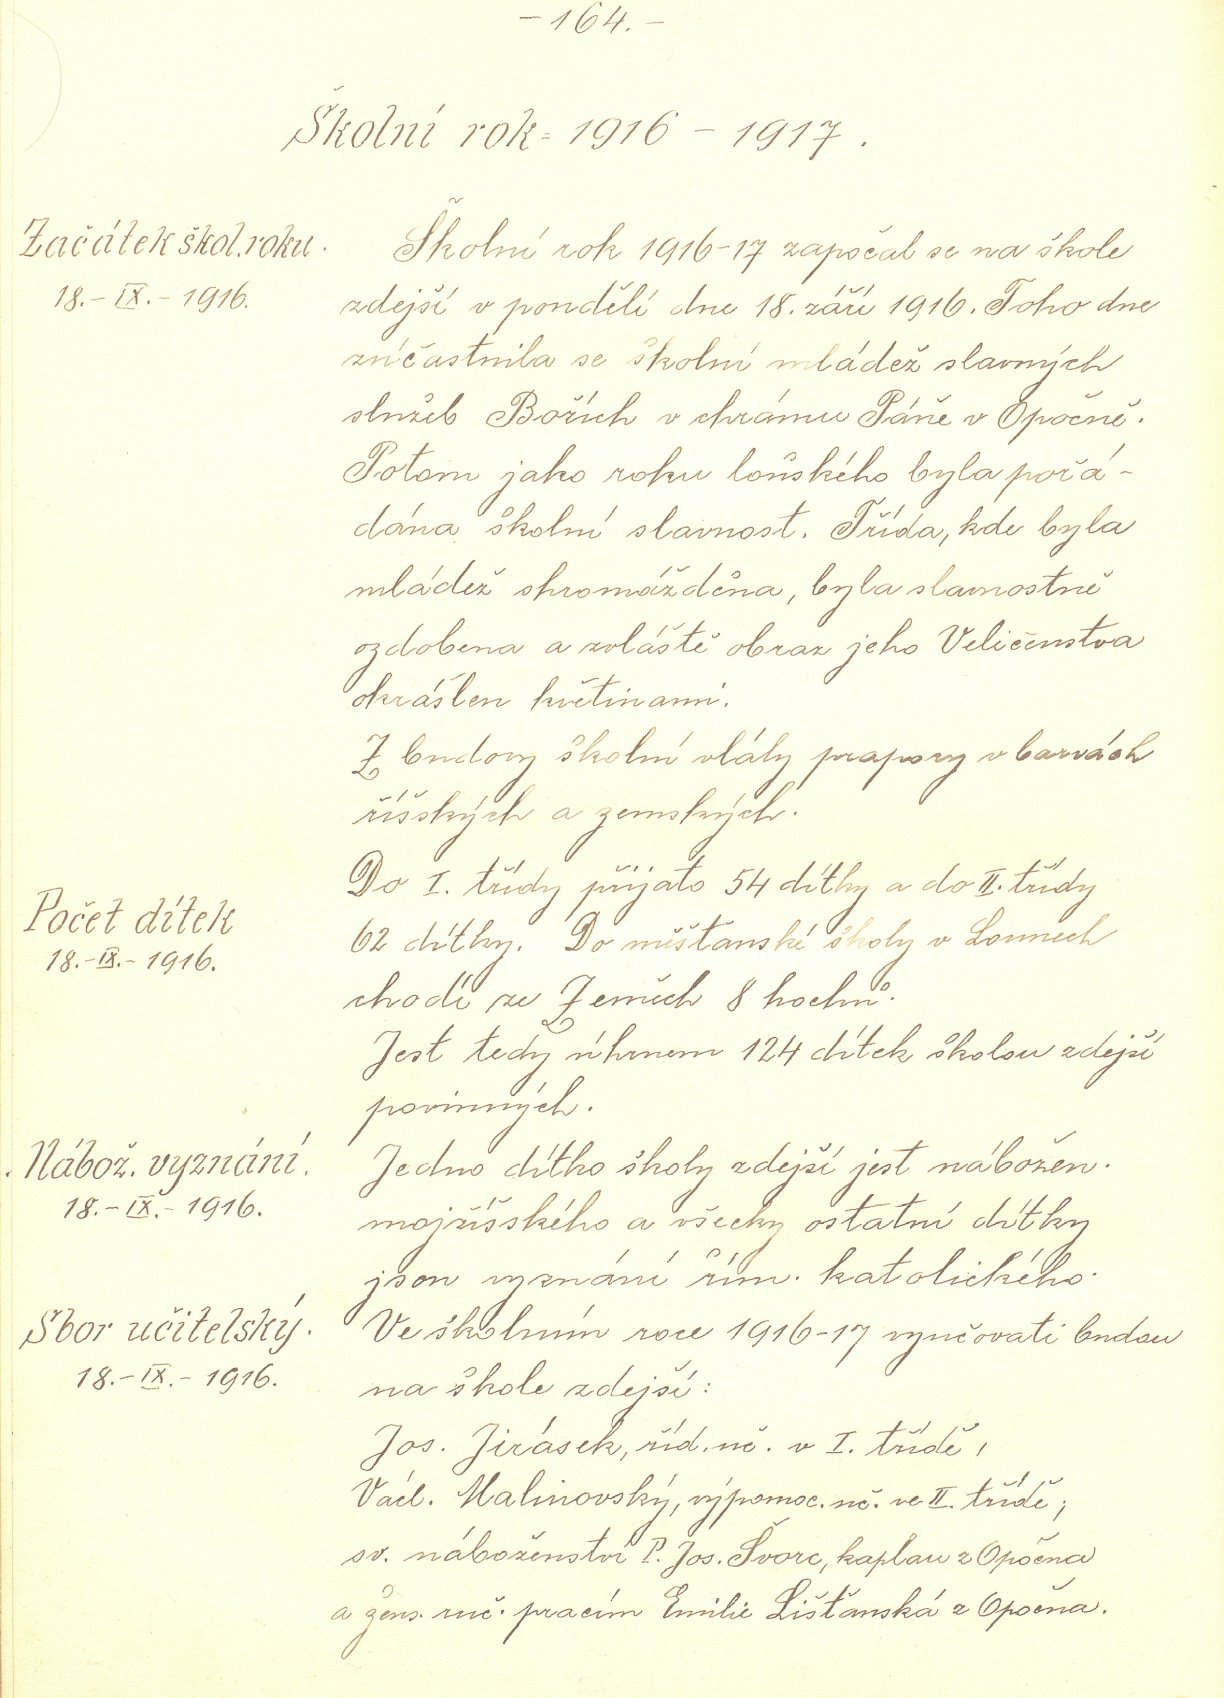 - 164. -
Školní rok = 1916 - 1917.
Začátek škol. roku.
18. - IX. - 1916.
Školní rok 1916-17 započal se na škole
zdejší v pondělí dne 18. září 1916. Toho dne
zúčastnila se školní mládež slavných
služeb Božích v chrámu Páně v Opočně.
Potom jako roku loňského byla pořá-
dána školní slavnost. Třída, kde byla
mládež shromážděna, byla slavnostně
ozdobena a zvláště obraz jeho Veličenstva
okrášlen květinami.
Z budovy školní vlály prapory v barvách
říšských a zemských.
Počet dítek
18. - IX. - 1916.
Do I. třídy přijato 54 dítky a do II. třídy
62 dítky. Do měšťanské školy v Lounech
chodí ze Zeměch 8 hochů.
Jest tedy úhrnem 124 dítek školou zdejší
povinných.
Nábož. vyznání.
18. - IX. - 1916.
Jedno dítko školy zdejší jest nábožen.
mojžíšského a všecky ostatní dítky
jsou vyznání řím. katolického.
Sbor učitelský.
18. - IX. - 1916.
Ve školním roce 1916-17 vyučovati budou
na škole zdejší:
Jos. Jirásek, říd. uč. v I. třídě,
Václ. Malinovský, výpomoc. uč. ve II. třídě;
sv. náboženství P. Jos. Švorc, kaplan z Opočna
a žens. ruč. pracím Emilie Lišťanská z Opočna.